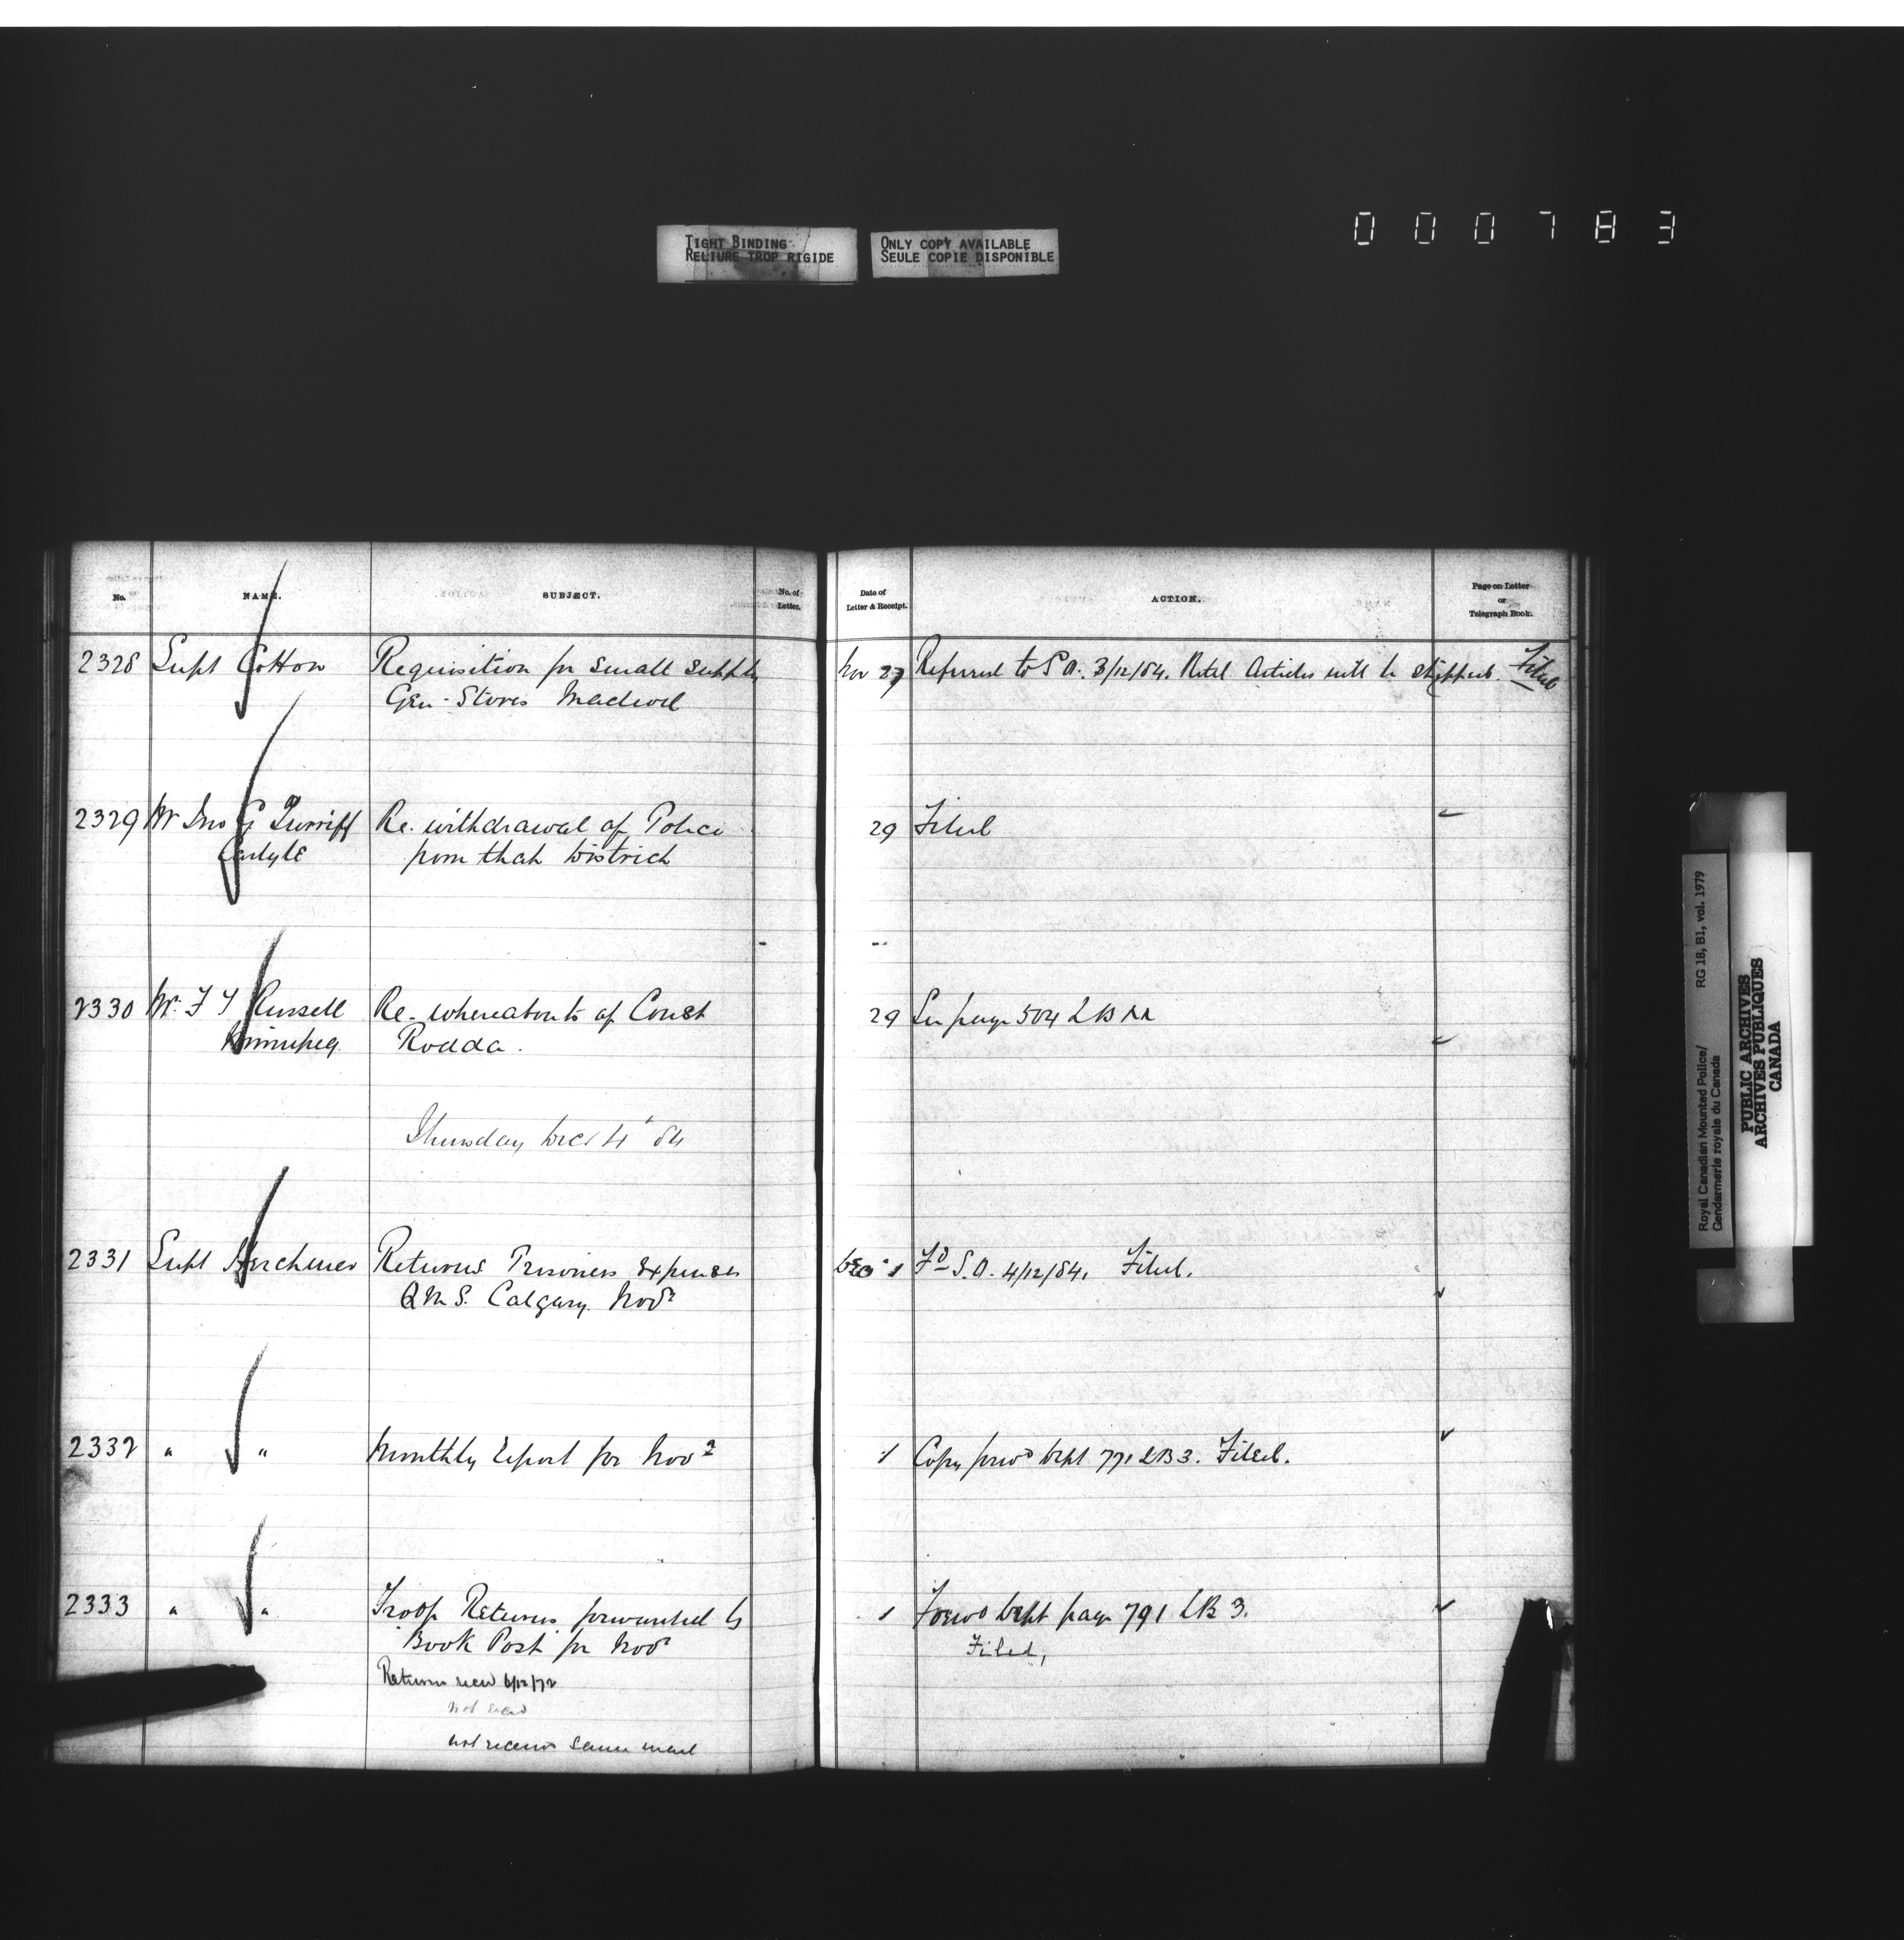 TIGHT BINDING
RELIURE TROP RIGIDE
ONLY COPY AVAILABLE
SEULE COPIE DISPONIBLE
000783
No. NAME. SUBJECT. No. of Letter. Date of Letter & Receipt. ACTION. Page on Letter or Telegraph Book.
2328 Supt Cotton Requisition for small supply Nov 27 Referred to S.O. 3/12/84. Articles will be shipped. Filed
Gen-Stores Macleod
2329 Mr Jno G Turriff Re. withdrawal of Police 29 Filed
Carlyle from that District
2330 Mr. F Y Russell Re. whereabouts of Const 29 See page 504 LB
Winnipeg. Rodda.
Thursday Dec 4' 84
2331 Supt Herchmer Returns Prisoners Expenses Dec 1 Fd S.O. 4/12/84. Filed.
Q M S. Calgary. Novr
2332 " " Monthly Report for Novr 1 Copy forwd Dept 771 LB 3. Filed.
2333 " " Troop Returns forwarded by 1 Forwd Dept page 791 LB 3.
Book Post for Novr Filed,
Returns recd
not recd
not received same mail
Royal Canadian Mounted Police/ RG 18, B1, vol. 1979
Gendarmerie royale du Canada
PUBLIC ARCHIVES
ARCHIVES PUBLIQUES
CANADA